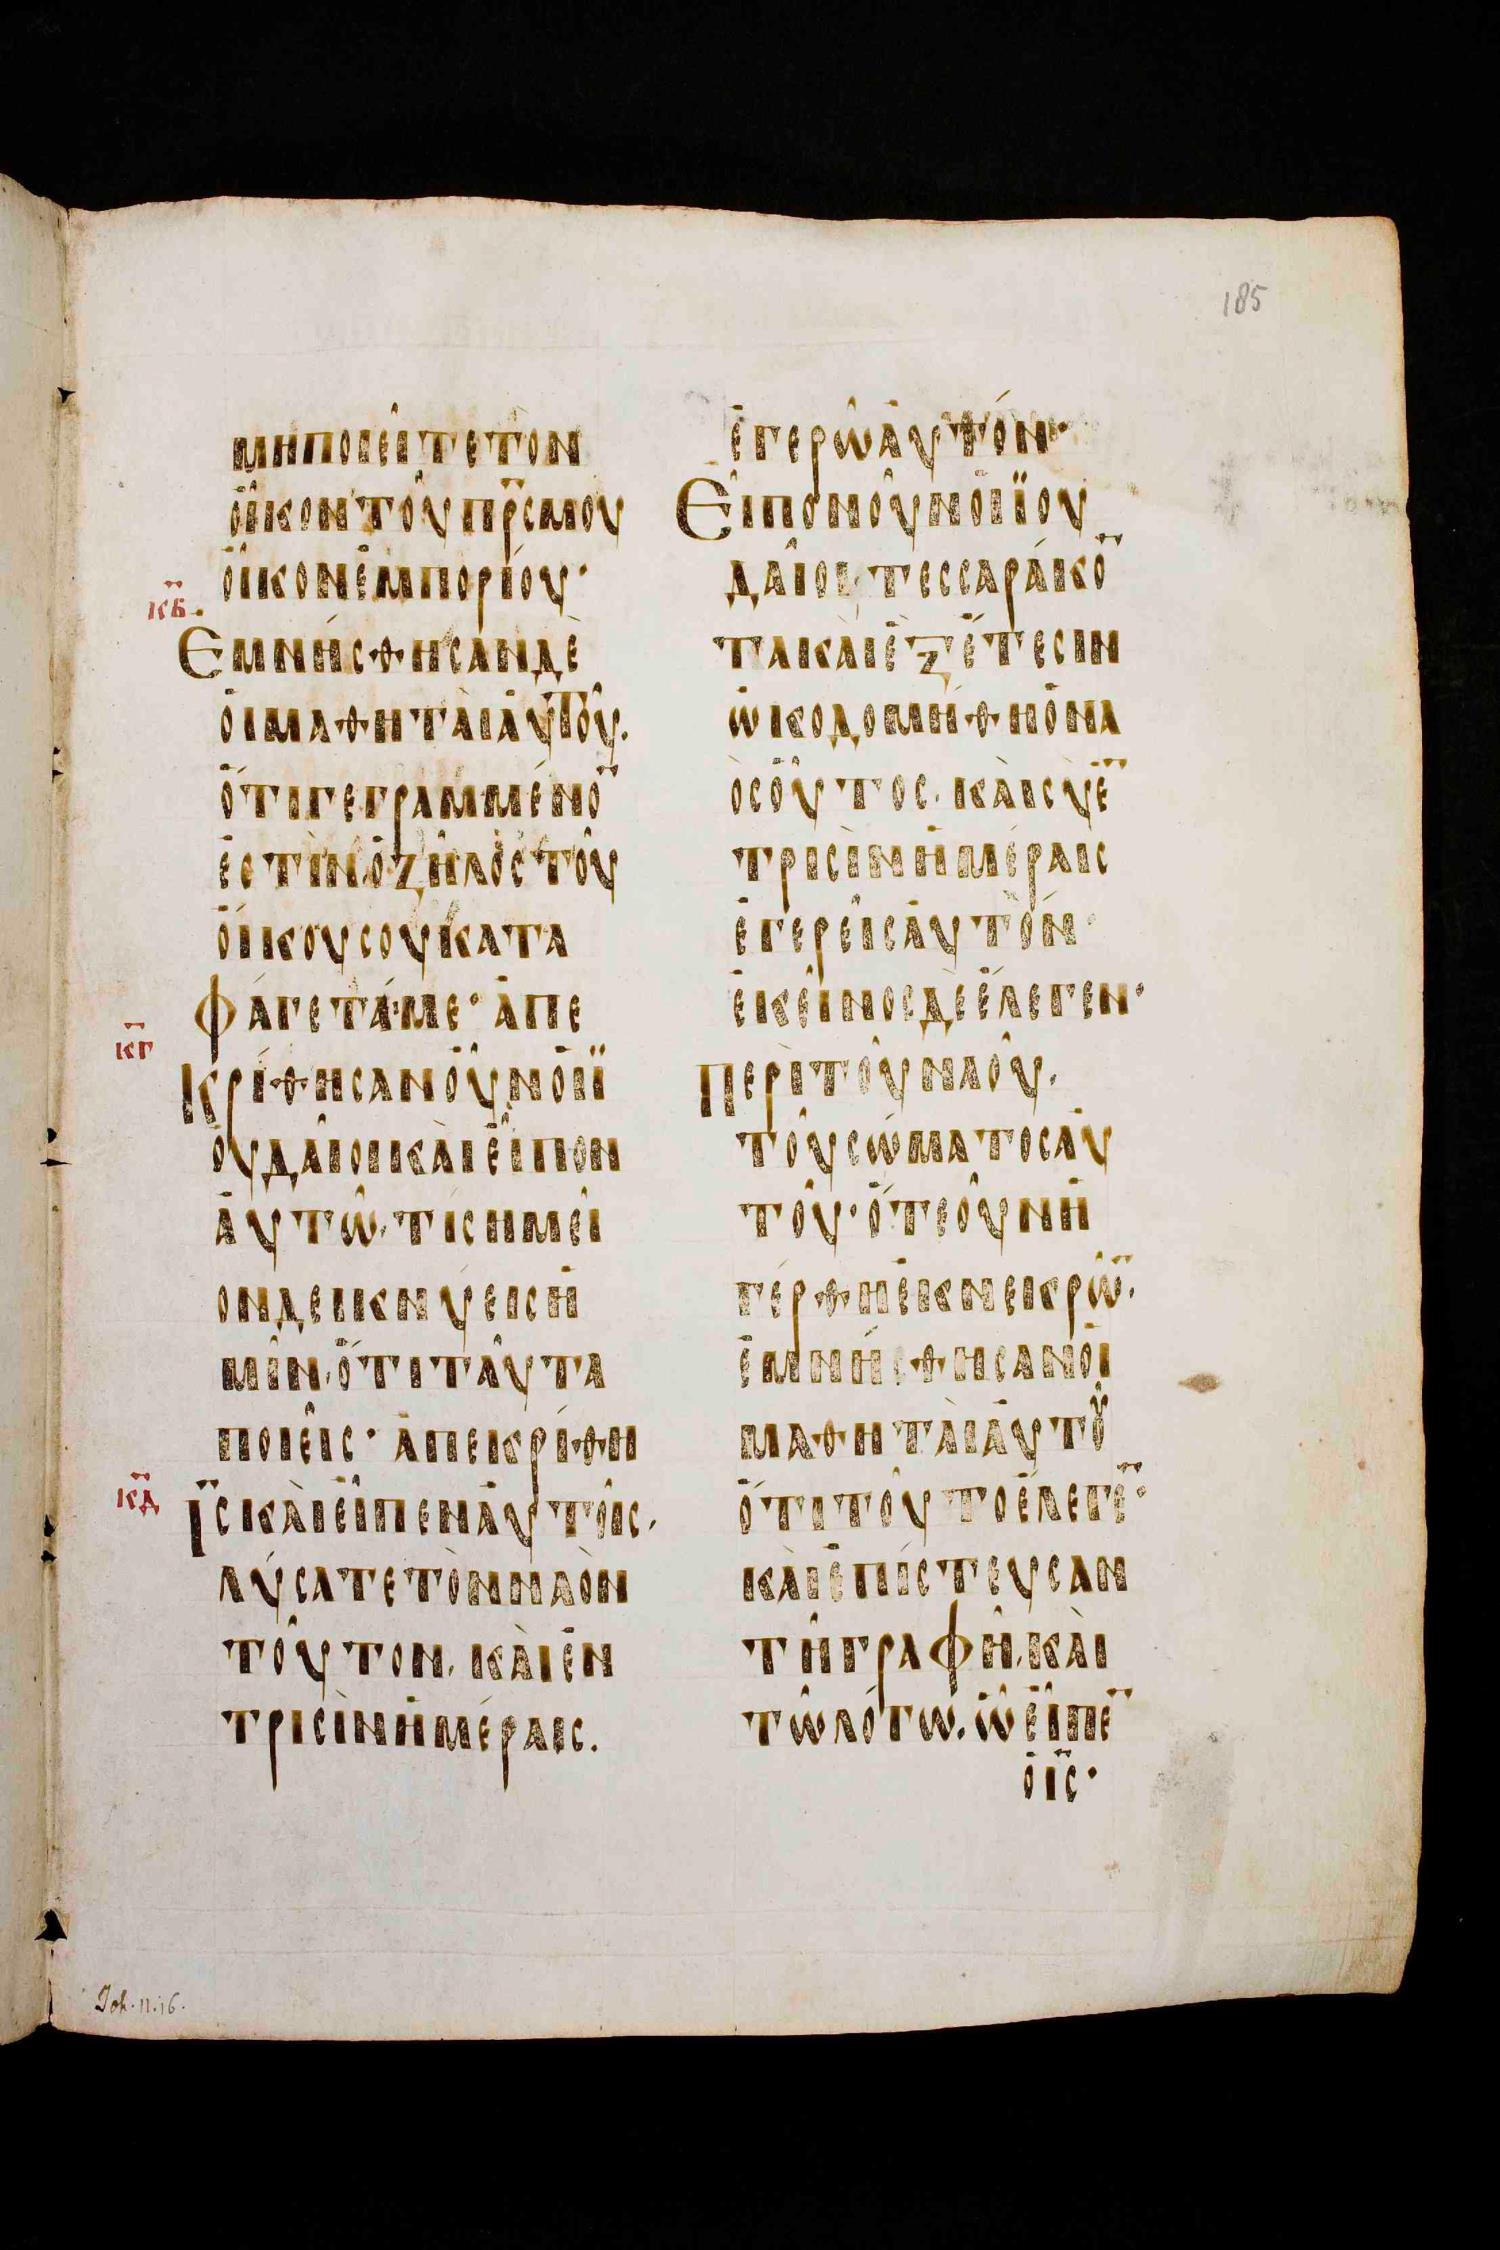 185
μὴποιεῖτετὸν
ὀῖκοντοῦπρ̅σμου
ὀῖκονἐμπορίου·
κβ
Ἐμνήσθησανδὲ
ὁιμαθητὰιἀυτοῦ.
ὅτιγεγραμμένο̅
ἐστὶν.ὁζῆλόςτοῦ
ὀίκουσουκατα
φάγεταίμε· ἀπε
κγ
κρίθησανὀῦνὁιϊ
ουδαῖοικὰιἐῖπον
ἀυτῶ. τίσημεῖ
ονδεικνύεισἡ
μῖν. ὅτιταῦτα
ποιεῖς· ἀπεκρίθη
κδ
ι̅ςκὰιἐῖπενἀυτοῖς.
λύσατετὸνναὸν
τοῦτον. κὰιἐν
τρισὶνἡμέραις.
ἐγερῶἀυτόν·
Ἐῖπονὀῦνὁιϊου
δαῖοι. τεσσαράκο̅
τακαὶἐξἔτεσιν
ὠικοδομήθηὁνα
ὸσοῦτος. κὰισὺἐ̅
τρισὶνἡμέραις
ἐγερεῖσἀυτόν·
ἐκεῖνοσδὲἔλεγεν·
Περὶτοῦναοῦ.
τοῦσώματοσἀυ
τοῦ· ὅτεοῦνἠ
γέρθηἐκνεκρῶ̅.
ἐμνήσθησανὁι
μαθητὰιἀυτοῦ
ὅτιτοῦτοἔλεγε̅·
κὰιἐπίστευσαν
τῆγραφῆ. κὰι
τῶλόγω. ὧἐῖπε̅
ὁι̅ς·
Joh. II. 16.